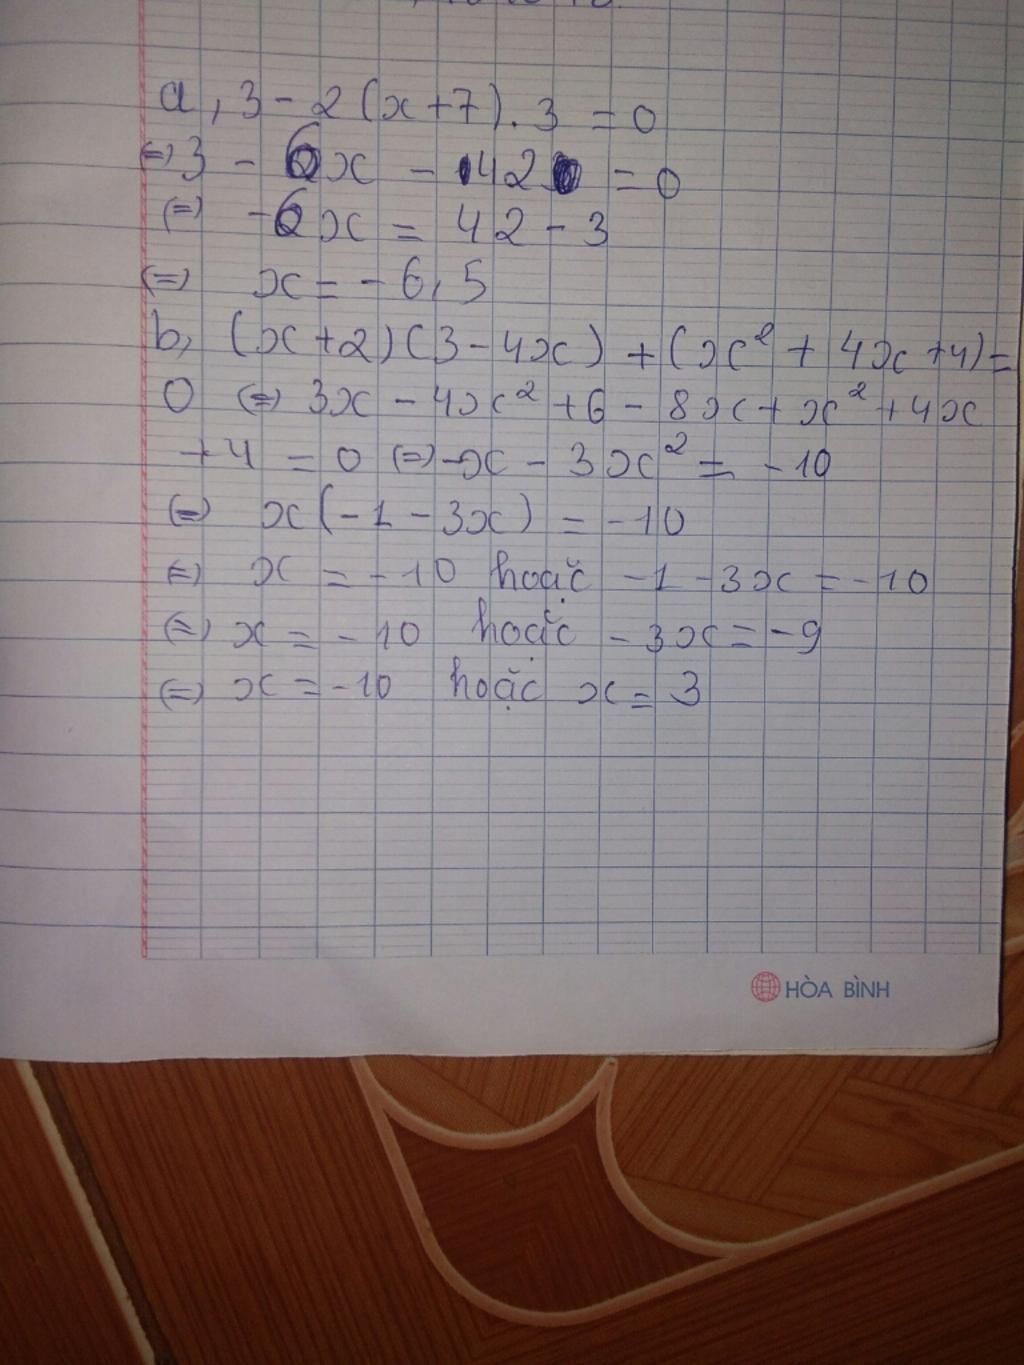 a, 3 - 2(x+7).3 = 0
(=) 3 - 6x - 42 = 0
(=) -6x = 42 - 3
(=) x = - 6,5
b, (x+2)(3-4x) + (x² + 4x +4) =
0 (=) 3x - 4x² + 6 - 8x + x² + 4x
+4 = 0 (=) -x - 3x² = - 10
(=) x(-1-3x) = -10
(=) x = -10 hoặc -1 -3x = -10
(=) x = - 10 hoặc - 3x = -9
(=) x = -10 hoặc x = 3
HÒA BÌNH